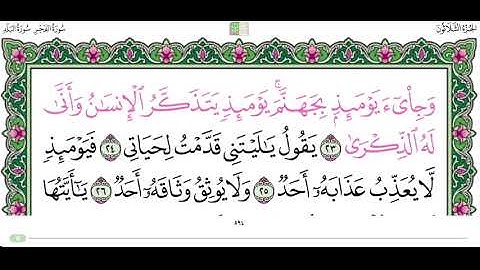 الجزء الثلاثون
سورة الفجر سورة البلد
وَجِا۟يٓءَ يَوْمَئِذِۭ بِجَهَنَّمَۚ يَوْمَئِذٖ يَتَذَكَّرُ اُ۬لْإِنسَٰنُ وَأَنّٰى
لَهُ اُ۬لذِّكْر۪ىٰ ٢٣ يَقُولُ يَٰلَيْتَنِے قَدَّمْتُ لِحَيَاتِے ٢٤ فَيَوْمَئِذٖ
لَّا يُعَذِّبُ عَذَابَهُۥٓ أَحَدٞ ٢٥ وَلَا يُوثِقُ وَثَاقَهُۥٓ أَحَدٞ ٢٦ يَٰٓأَيَّتُهَا
٥٩٤